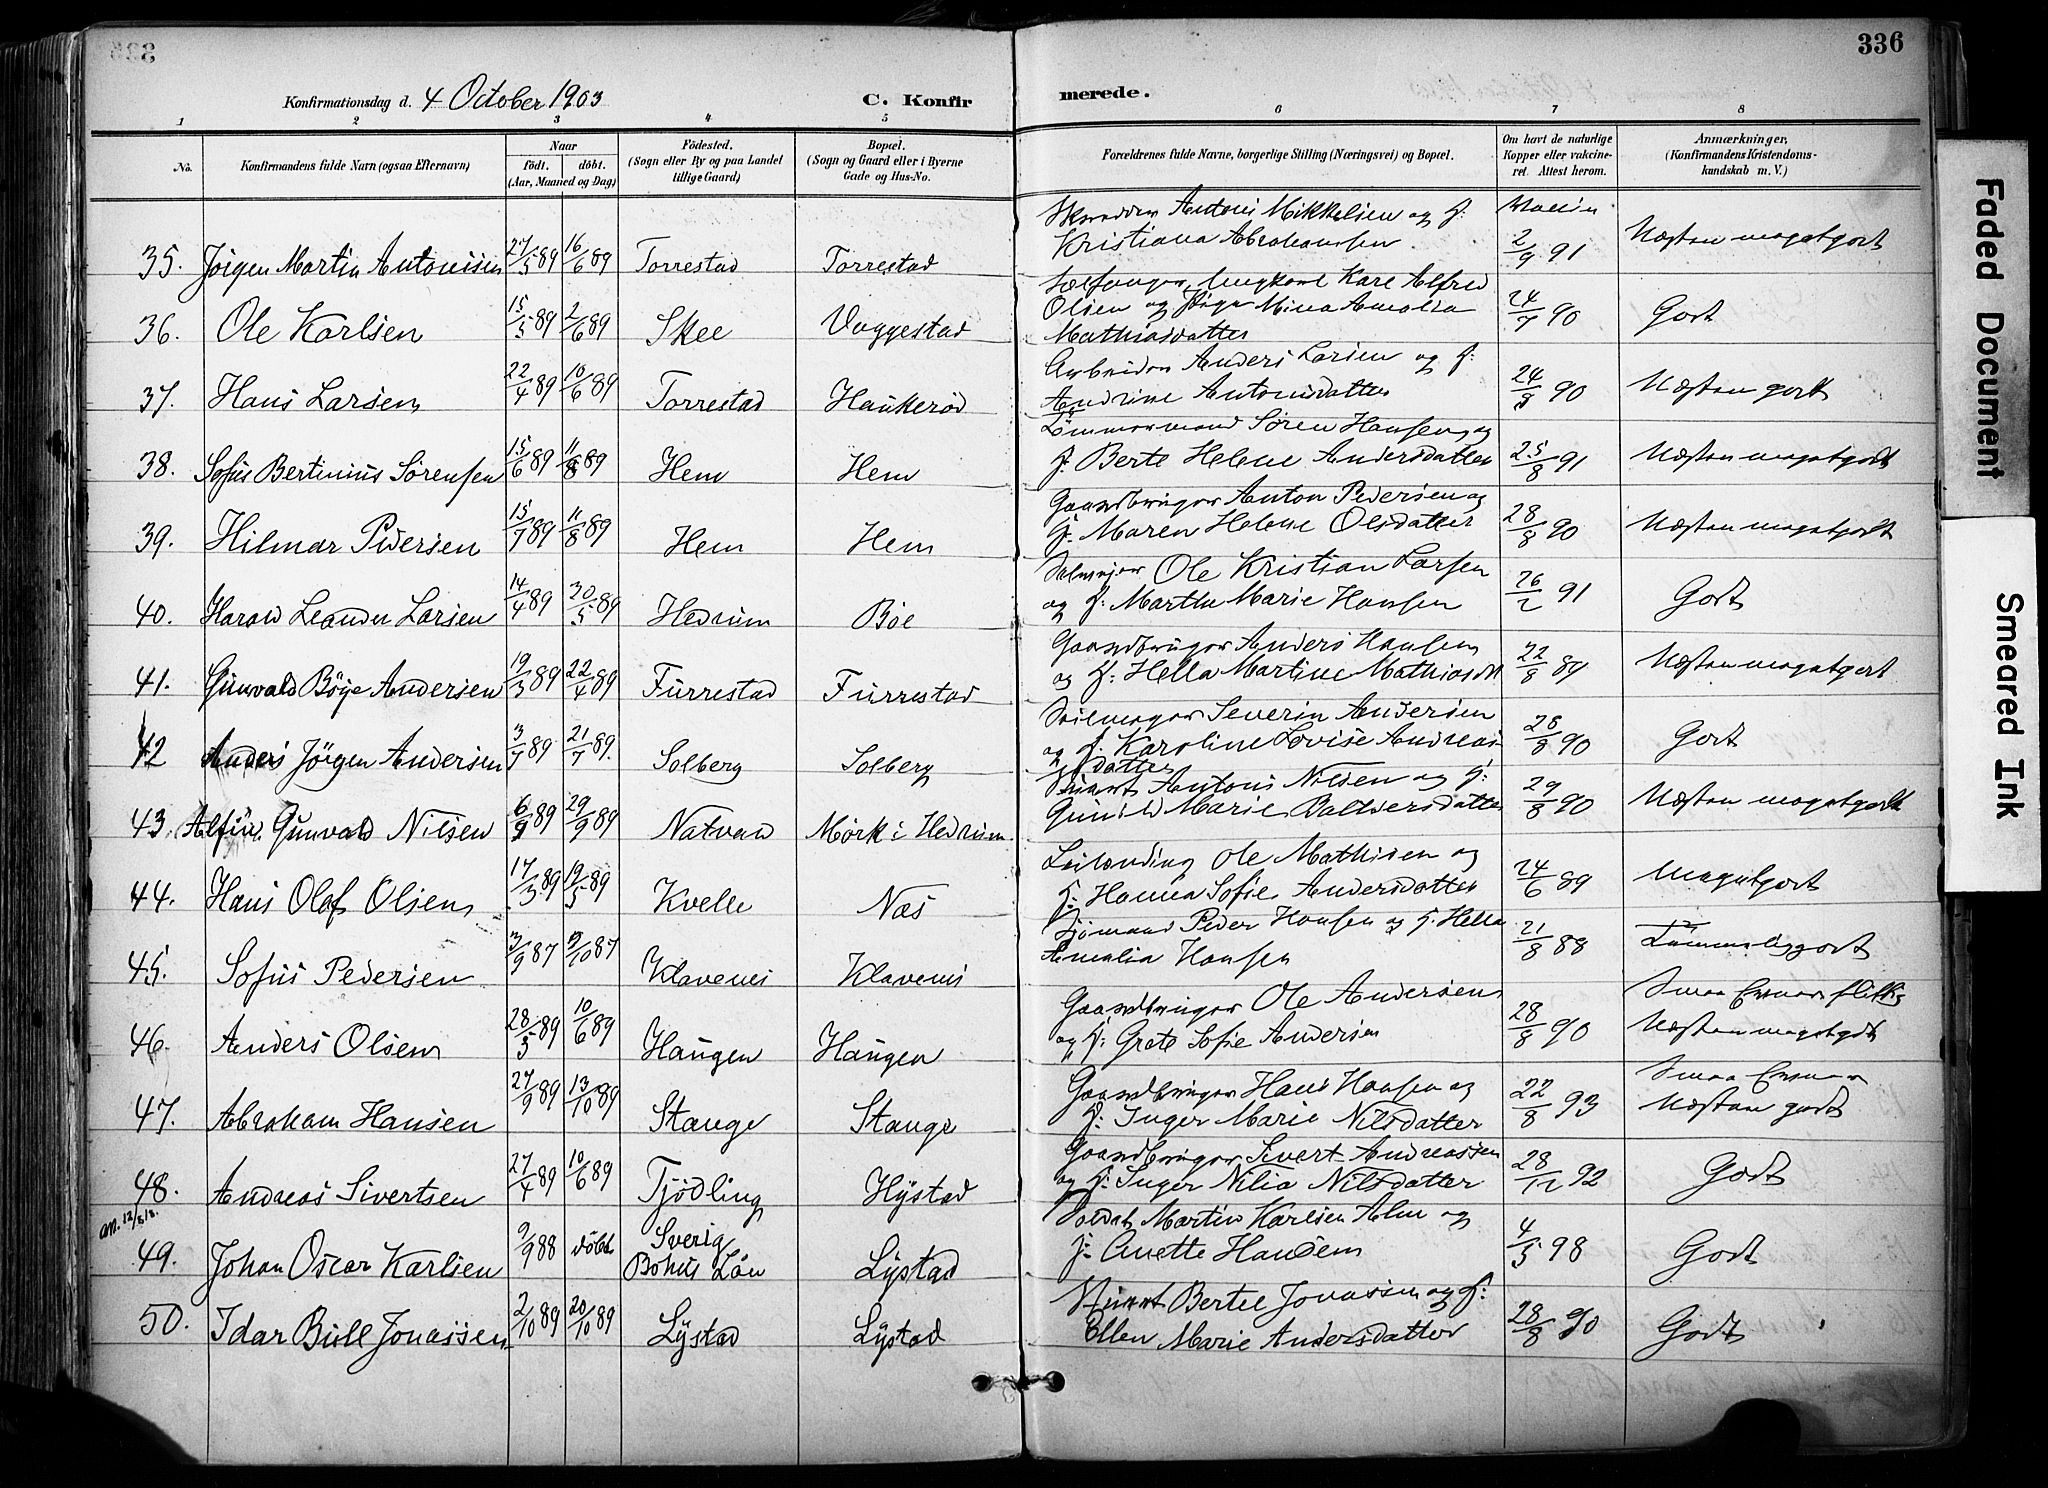 336
Konfirmationsdag d. 4 October 1903 C. Konfirmerede.
1 2 3 4 5 6 7 8
No. Konfirmandens fulde Navn (ogsaa Efternavn) Naar født. døbt. (Aar, Maaned og Dag) Fødested. (Sogn eller By og paa Landet tillige Gaard) Bopæl. (Sogn og Gaard eller i Byerne Gade og Hus-No. Forældrenes fulde Navne, borgerlige Stilling (Næringsvei) og Bopæl. Om havt de naturlige Kopper eller vakcineret. Attest herom. Anmærkninger, (Konfirmandens Kristendomskundskab m. V.)
35. Jørgen Martin Antonissen 27/5 89 16/6 89 Torrestad Torrestad Skrædder Antoni Mikkelsen og H: Kristiana Abrahamsen Vaccin. 2/9 91 Næsten megetgodt
36. Ole Karlsen 15/5 89 2/6 89 Skee Vaggestad Sælfanger, Ungkarl Kare Alfred Olsen og Pige Mina Amalia Mathiasdatter 24/7 90 Godt
37. Hans Larsen 22/4 89 10/6 89 Torrestad Haukerød Arbeider Anders Larsen og H: Andrine Antonsdatter 24/8 90 Næsten godt
38. Sofus Bertinius Sørensen 15/6 89 11/8 89 Hem Hem Tømmermand Søren Hansen og H: Berte Helene Andersdatter 25/8 91 Næsten megetgodt
39. Hilmar Pedersen 15/7 89 11/8 89 Hem Hem Gaardbruger Anton Pedersen og H: Maren Helene Olsdatter 28/8 90 Næsten megetgodt
40. Harald Leander Larsen 14/4 89 30/5 89 Hedrum Bøe Selveier Ole Kristian Larsen og H: Marthe Marie Hansen 26/2 91 Godt
41. Gunvald Böye Andersen 19/3 89 22/4 89 Furrestad Furrestad Gaardbruger Anders Hansen og H: Hella Martine Mathiasdt 22/8 89 Næsten megetgodt
42 Anders Jörgen Andersen 3/7 89 21/7 89. Solberg Solberg Seilmager Severin Andersen og H: Karoline Lovise Andreasdatter 28/8 90 Godt
43. Alfin. Gunvald Nilsen 6/9 89 29/9 89 Natvad Mørk i Hedrum Antoni Nilsen og H: Gunild Marie Baltsersdatter 29/8 90 Næsten megetgodt
44. Hans Olaf Olsen 17/3 89 19/5 89 Kvelle Næs Leilending Ole Mathisen og H: Hanna Sofie Andersdatter 24/6 89 Megetgodt
45. Sofus Pedersen 3/9 87 9/10 87 Klavenes Klavenes Sjømand Peder Hansen og H. Hella Amalia Hansen 21/8 88 Tømmeliggodt
46. Anders Olsen 28/5 89 10/6 89 Haugen Haugen Gaardbruger Ole Andersen og H: Grete Sofie Andersen 28/8 90 Næsten megetgodt
47. Abraham Hansen 27/9 89 13/10 89 Stange Stange Gaardbruger Hans Hansen og H: Inger Marie Nilsdatter 22/8 93 Næsten godt
48. Andreas Sivertsen 27/4 89 10/6 89 Tjödling Hÿstad Gaardbruger Sivert Andreassen og H: Inger Nilia Nilsdatter 28/12 92 Godt
49. Johan Oscar Karlsen 9/9 88 døbt Sverig Bohus Län Lÿstad Soldat Martin Karlsen Alm og H: Anette Hansen 4/5 98 Godt
50. Idar Bull Jonassen 2/10 89 20/10 89 Lÿstad Lÿstad Bertel Jonassen og H: Ellen Marie Andersdatter 28/8 90 Godt
Faded Document
Smeared Ink